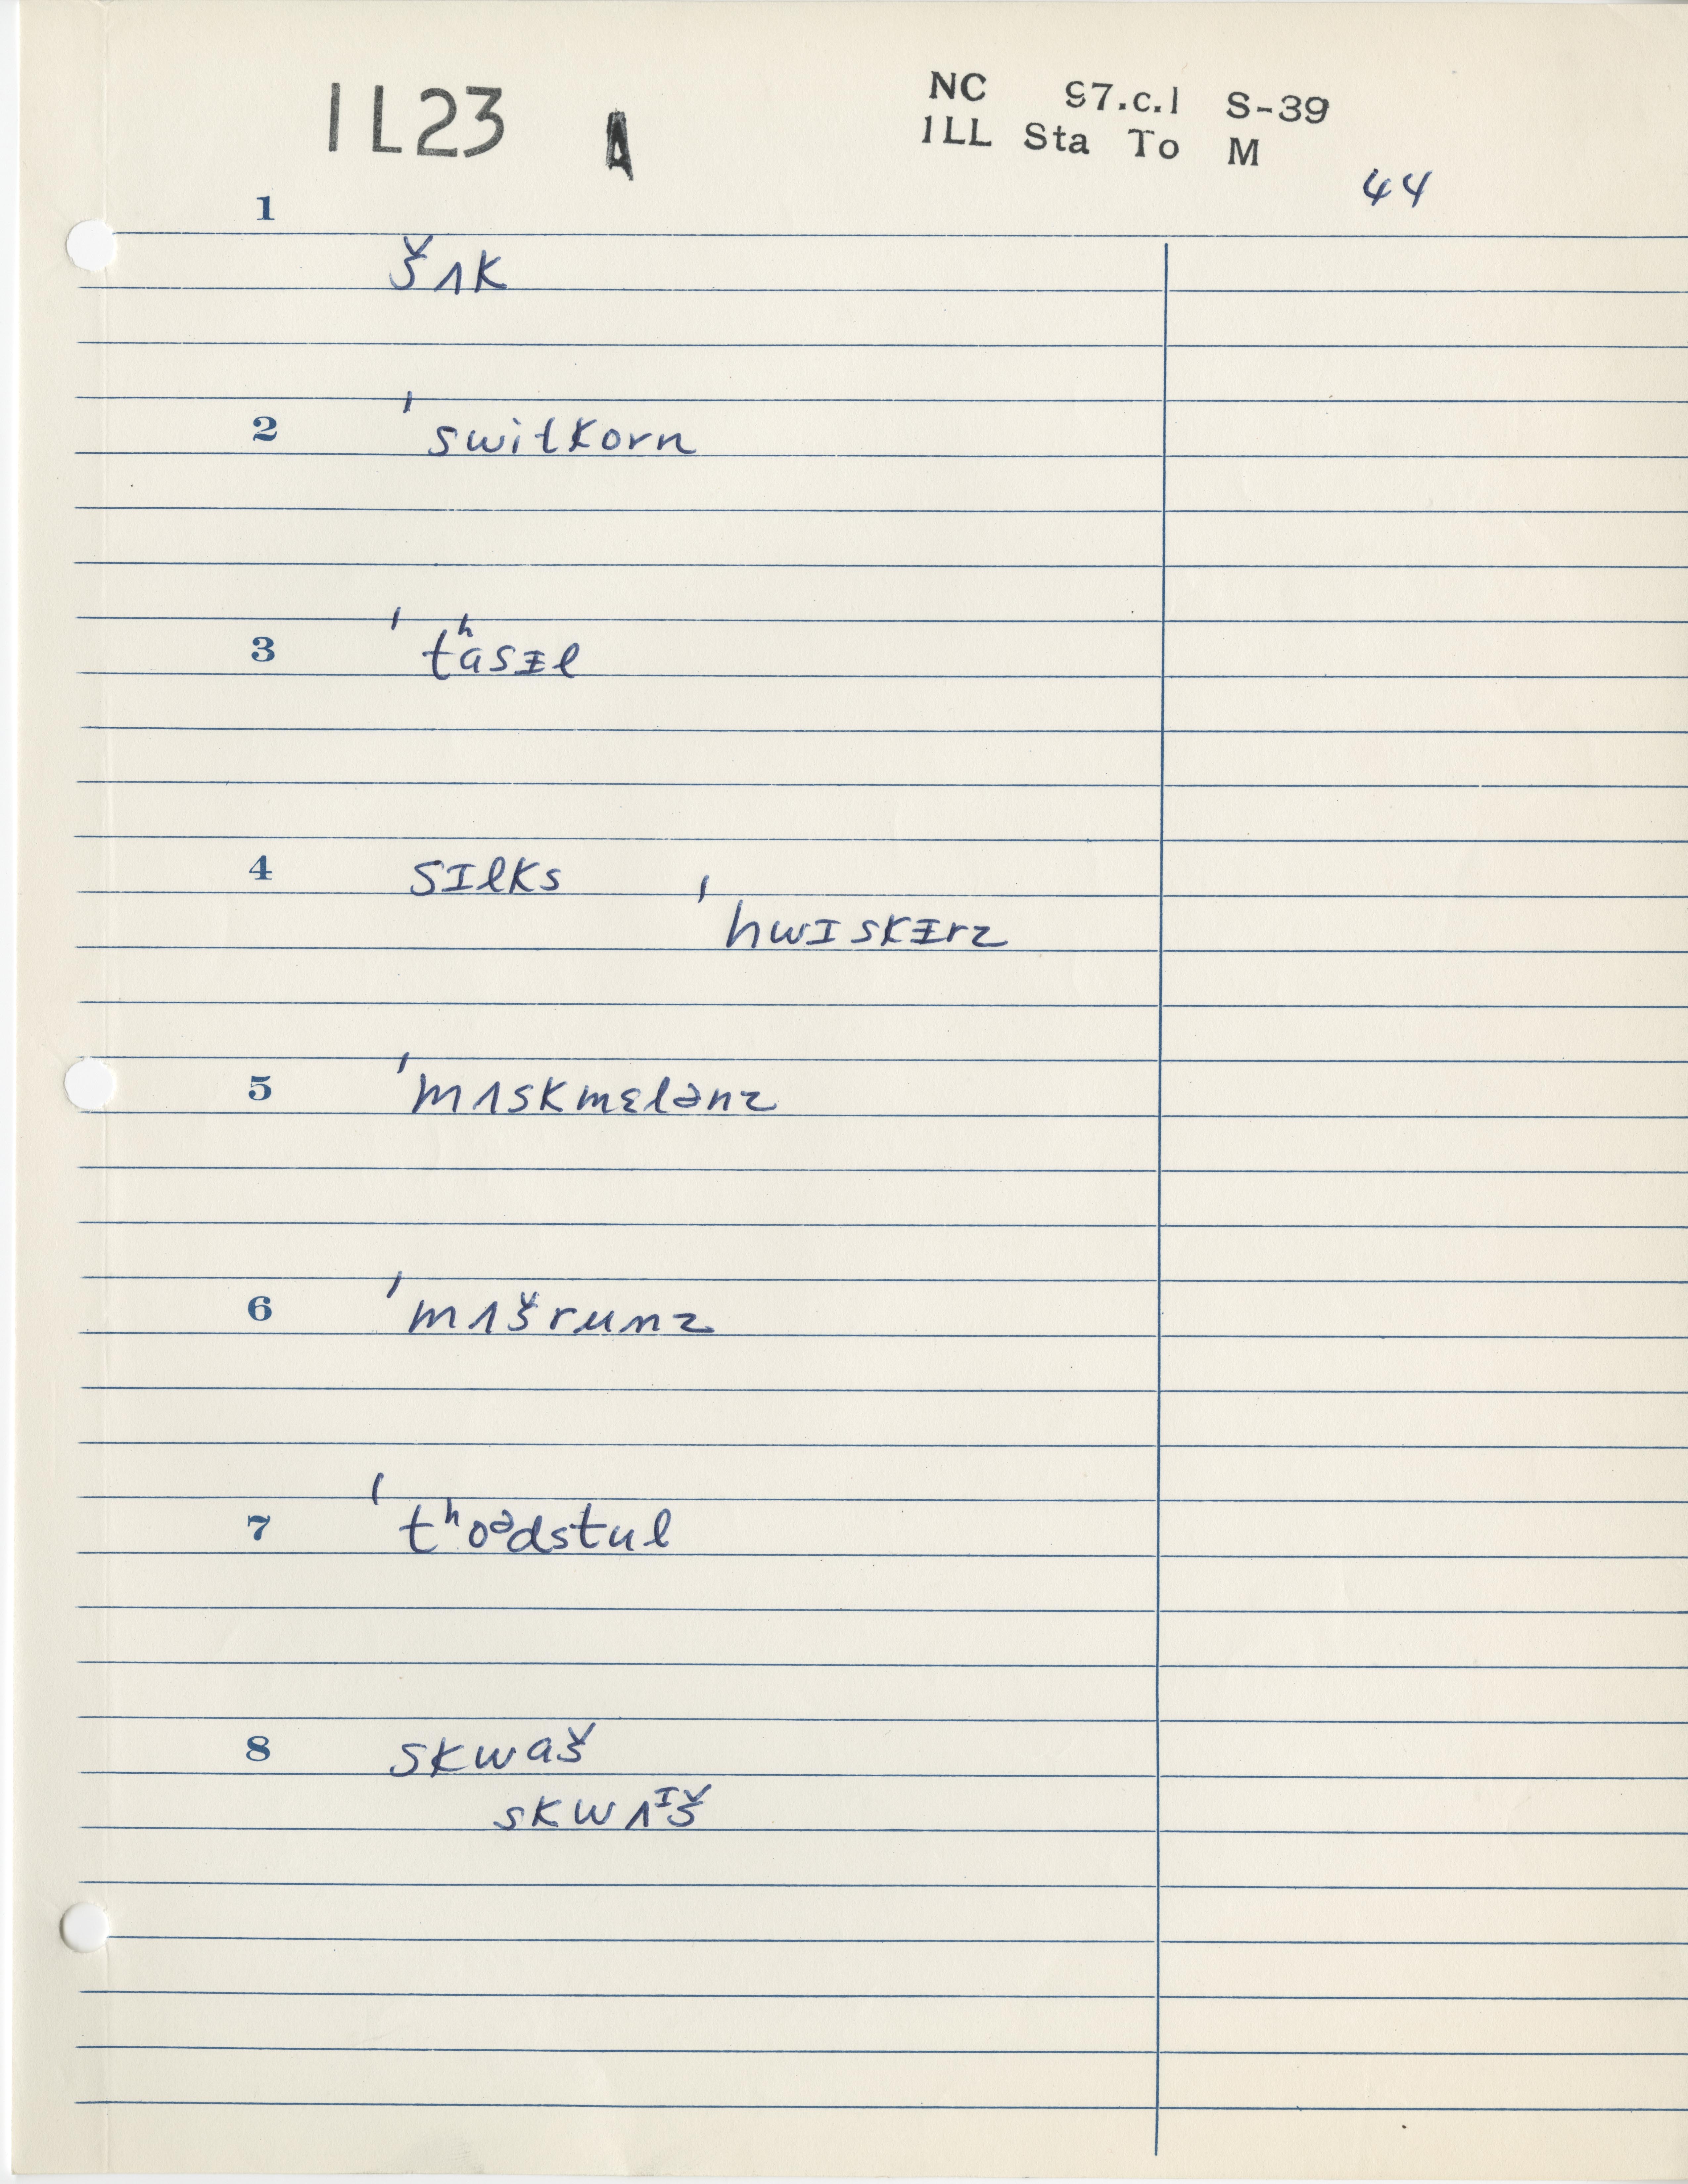 1L23 A
NC 97.c.1 S-39
ILL Sta To M
44
1 šʌk
2 'switkorn
3 'tʰasɪ̵l
4 sɪlks 'hwɪskɪ̵rz
5 'mʌskmɛlənz
6 'mʌšrumz
7 'tʰoᵊdstul
8 skwaš
skwʌᶦš